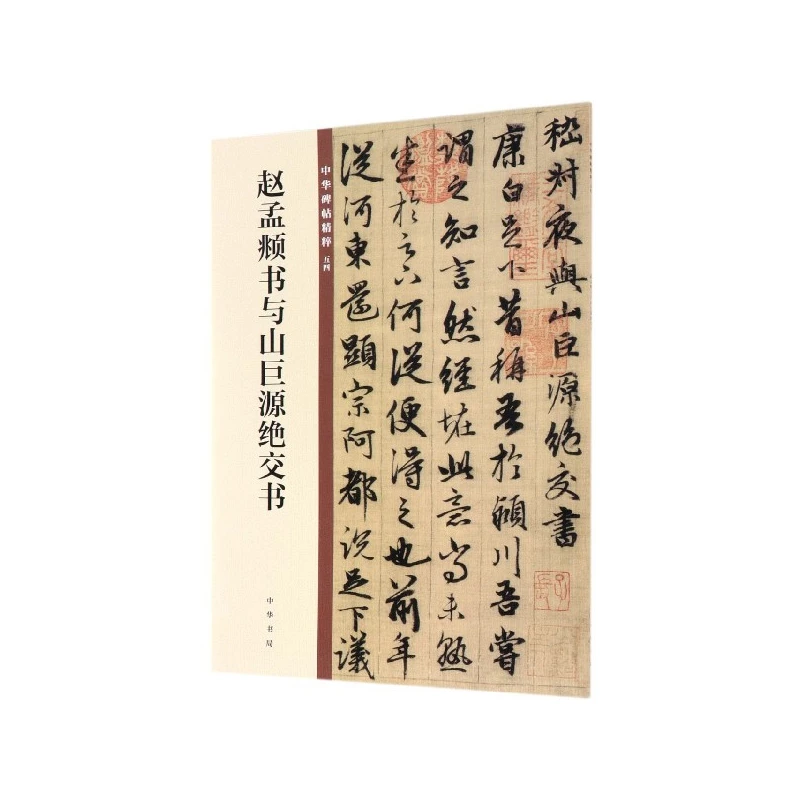 赵孟𫖯书与山巨源绝交书
中华书局
中华碑帖精粹 五四
嵇叔夜與山巨源絶交書
康白足下昔稱吾於潁川吾嘗
謂之知言然經怪此意尚未熟
悉於足下何從便得之也前年
從河東還顯宗阿都說足下議